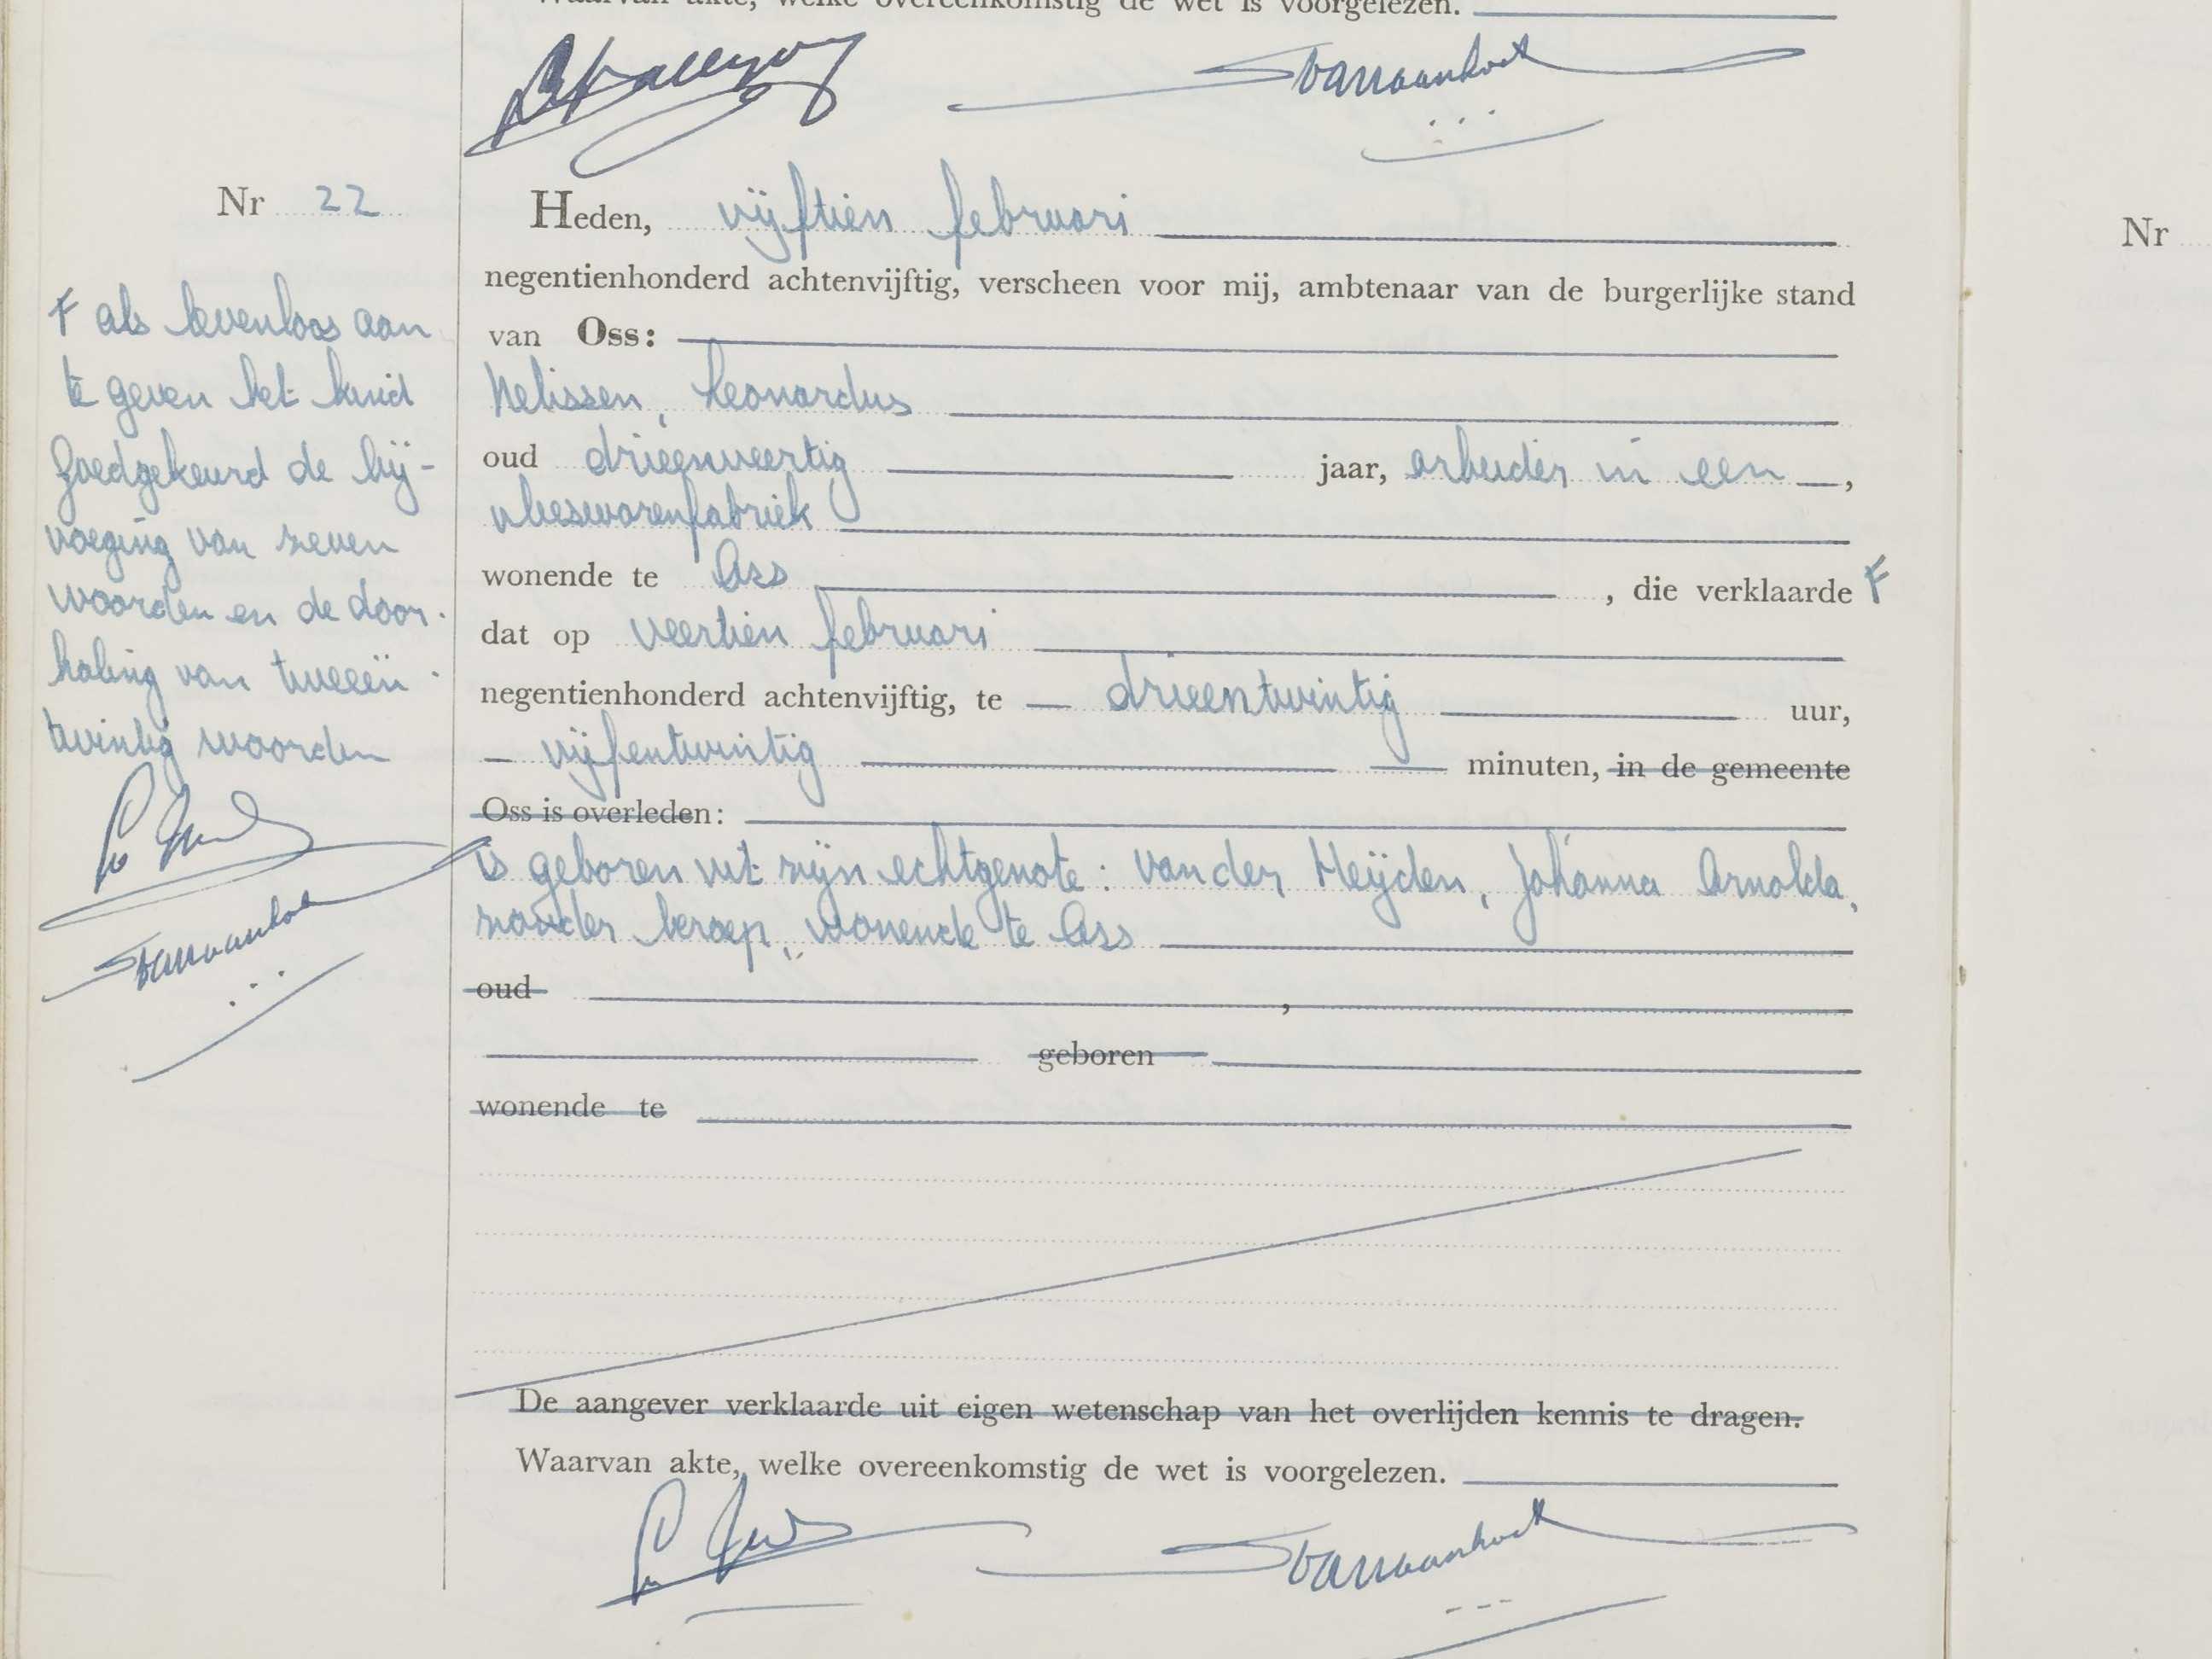 Waarvan akte, welke overeenkomstig de wet is voorgelezen.
Nr 22
F als levenloos aan
te geven het kind
Goedgekeurd de bij-
voeging van zeven
woorden en de door-
haling van tweeën-
twintig woorden
Heden, vijftien februari
negentienhonderd achtenvijftig, verscheen voor mij, ambtenaar van de burgerlijke stand
van Oss:
Nelissen, Leonardus
oud drieënveertig jaar, arbeider in een ,
vleeswarenfabriek
wonende te Oss , die verklaarde F
dat op veertien februari
negentienhonderd achtenvijftig, te drieentwintig uur,
vijfentwintig minuten, in de gemeente
Oss is overleden:
is geboren uit zijn echtgenote: van der Heijden, Johanna Arnolda,
zonder beroep, wonende te Oss
oud ,
geboren
wonende te
De aangever verklaarde uit eigen wetenschap van het overlijden kennis te dragen.
Waarvan akte, welke overeenkomstig de wet is voorgelezen.
Nr